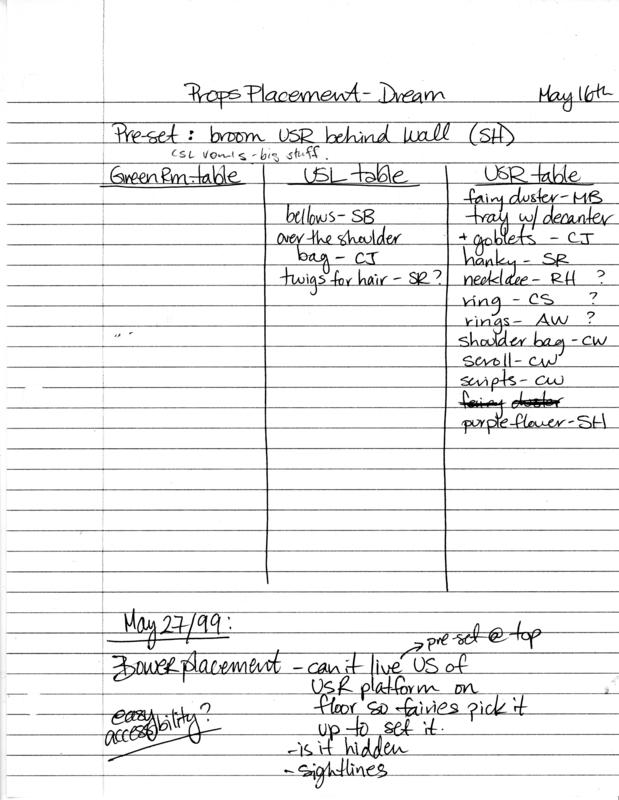 Props Placement - Dream May 16th
Pre-set : broom USR behind wall (SH)
USL voms - big stuff.
Green Rm. table
USL table
bellows - SB
over the shoulder
bag - CJ
twigs for hair - SR ?
USR table
fairy duster - MB
tray w/ decanter
+ goblets - CJ
hanky - SR
necklace - RH ?
ring - CS ?
rings - AW ?
shoulder bag - CW
scroll - CW
scripts - CW
fairy duster
purple flower - SH
May 27/99 :
→ pre-set @ top
Bower placement - can it live US of
USR platform on
floor so fairies pick it
up to set it.
- is it hidden
- sightlines
easy
accessibility?